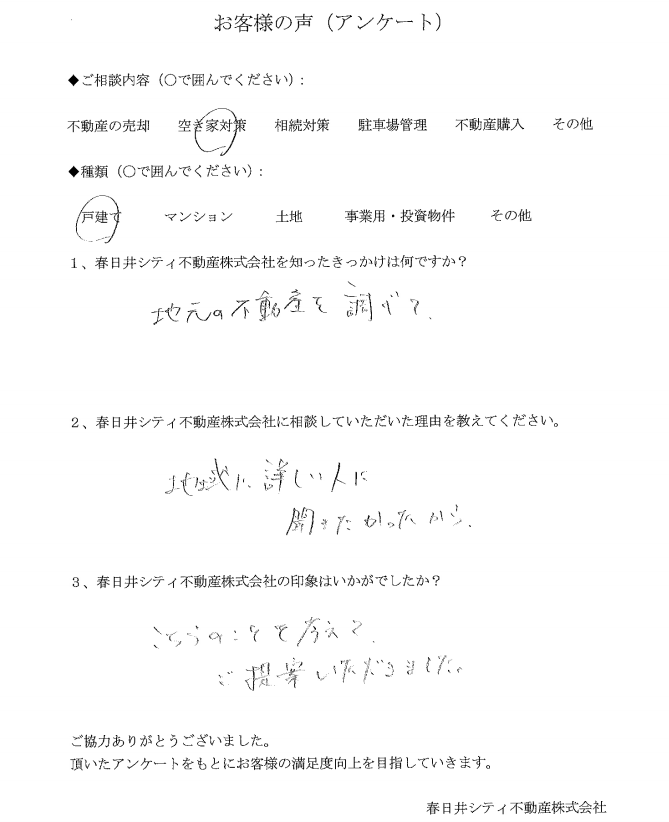 お客様の声（アンケート）
◆ご相談内容（○で囲んでください）：
不動産の売却　空き家対策　相続対策　駐車場管理　不動産購入　その他
◆種類（○で囲んでください）：
戸建て　マンション　土地　事業用・投資物件　その他
1、春日井シティ不動産株式会社を知ったきっかけは何ですか？
地元の不動産を調べて、
2、春日井シティ不動産株式会社に相談していただいた理由を教えてください。
地域に詳しい人に
聞きたかったから、
3、春日井シティ不動産株式会社の印象はいかがでしたか？
こちらのことを考えて、
ご提案いただきました。
ご協力ありがとうございました。
頂いたアンケートをもとにお客様の満足度向上を目指していきます。
春日井シティ不動産株式会社